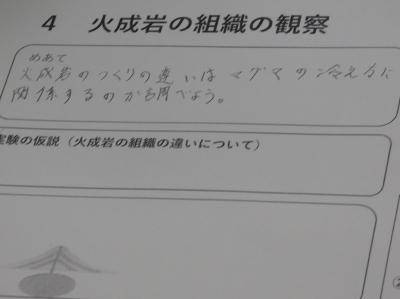 4 火成岩の組織の観察
めあて
火成岩のつくりの違いはマグマの冷え方に
関係するのか調べよう。
実験の仮説(火成岩の組織の違いについて)